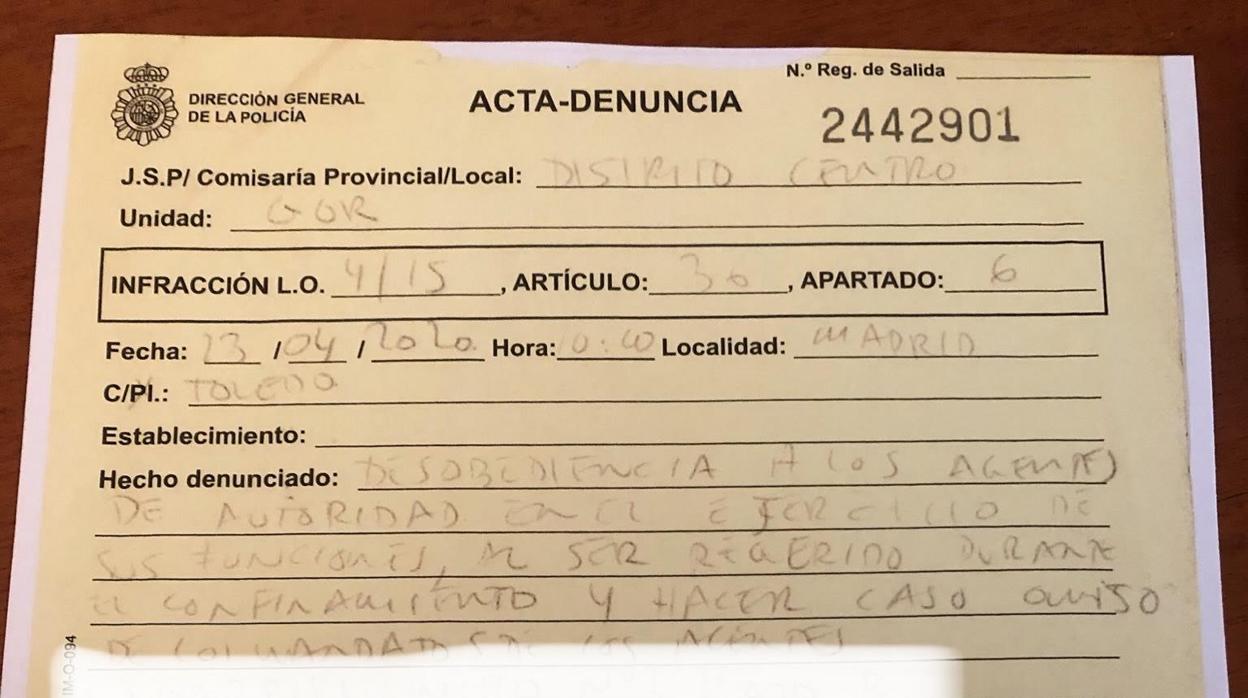 N.º Reg. de Salida
DIRECCIÓN GENERAL
DE LA POLICÍA
ACTA-DENUNCIA
2442901
J.S.P/ Comisaría Provincial/Local: DISTRITO CENTRO
Unidad: GOR
INFRACCIÓN L.O. 4/15, ARTÍCULO: 36, APARTADO: 6
Fecha: 23/04/2020 Hora: 0:40 Localidad: MADRID
C/Pl.: TOLEDO
Establecimiento:
Hecho denunciado: DESOBEDIENCIA A LOS AGENTES
DE AUTORIDAD EN EL EJERCICIO DE
SUS FUNCIONES, AL SER REQUERIDO DURANTE
EL CONFINAMIENTO Y HACER CASO OMISO
DE LOS MANDATOS DE LOS AGENTES
IM-O-094